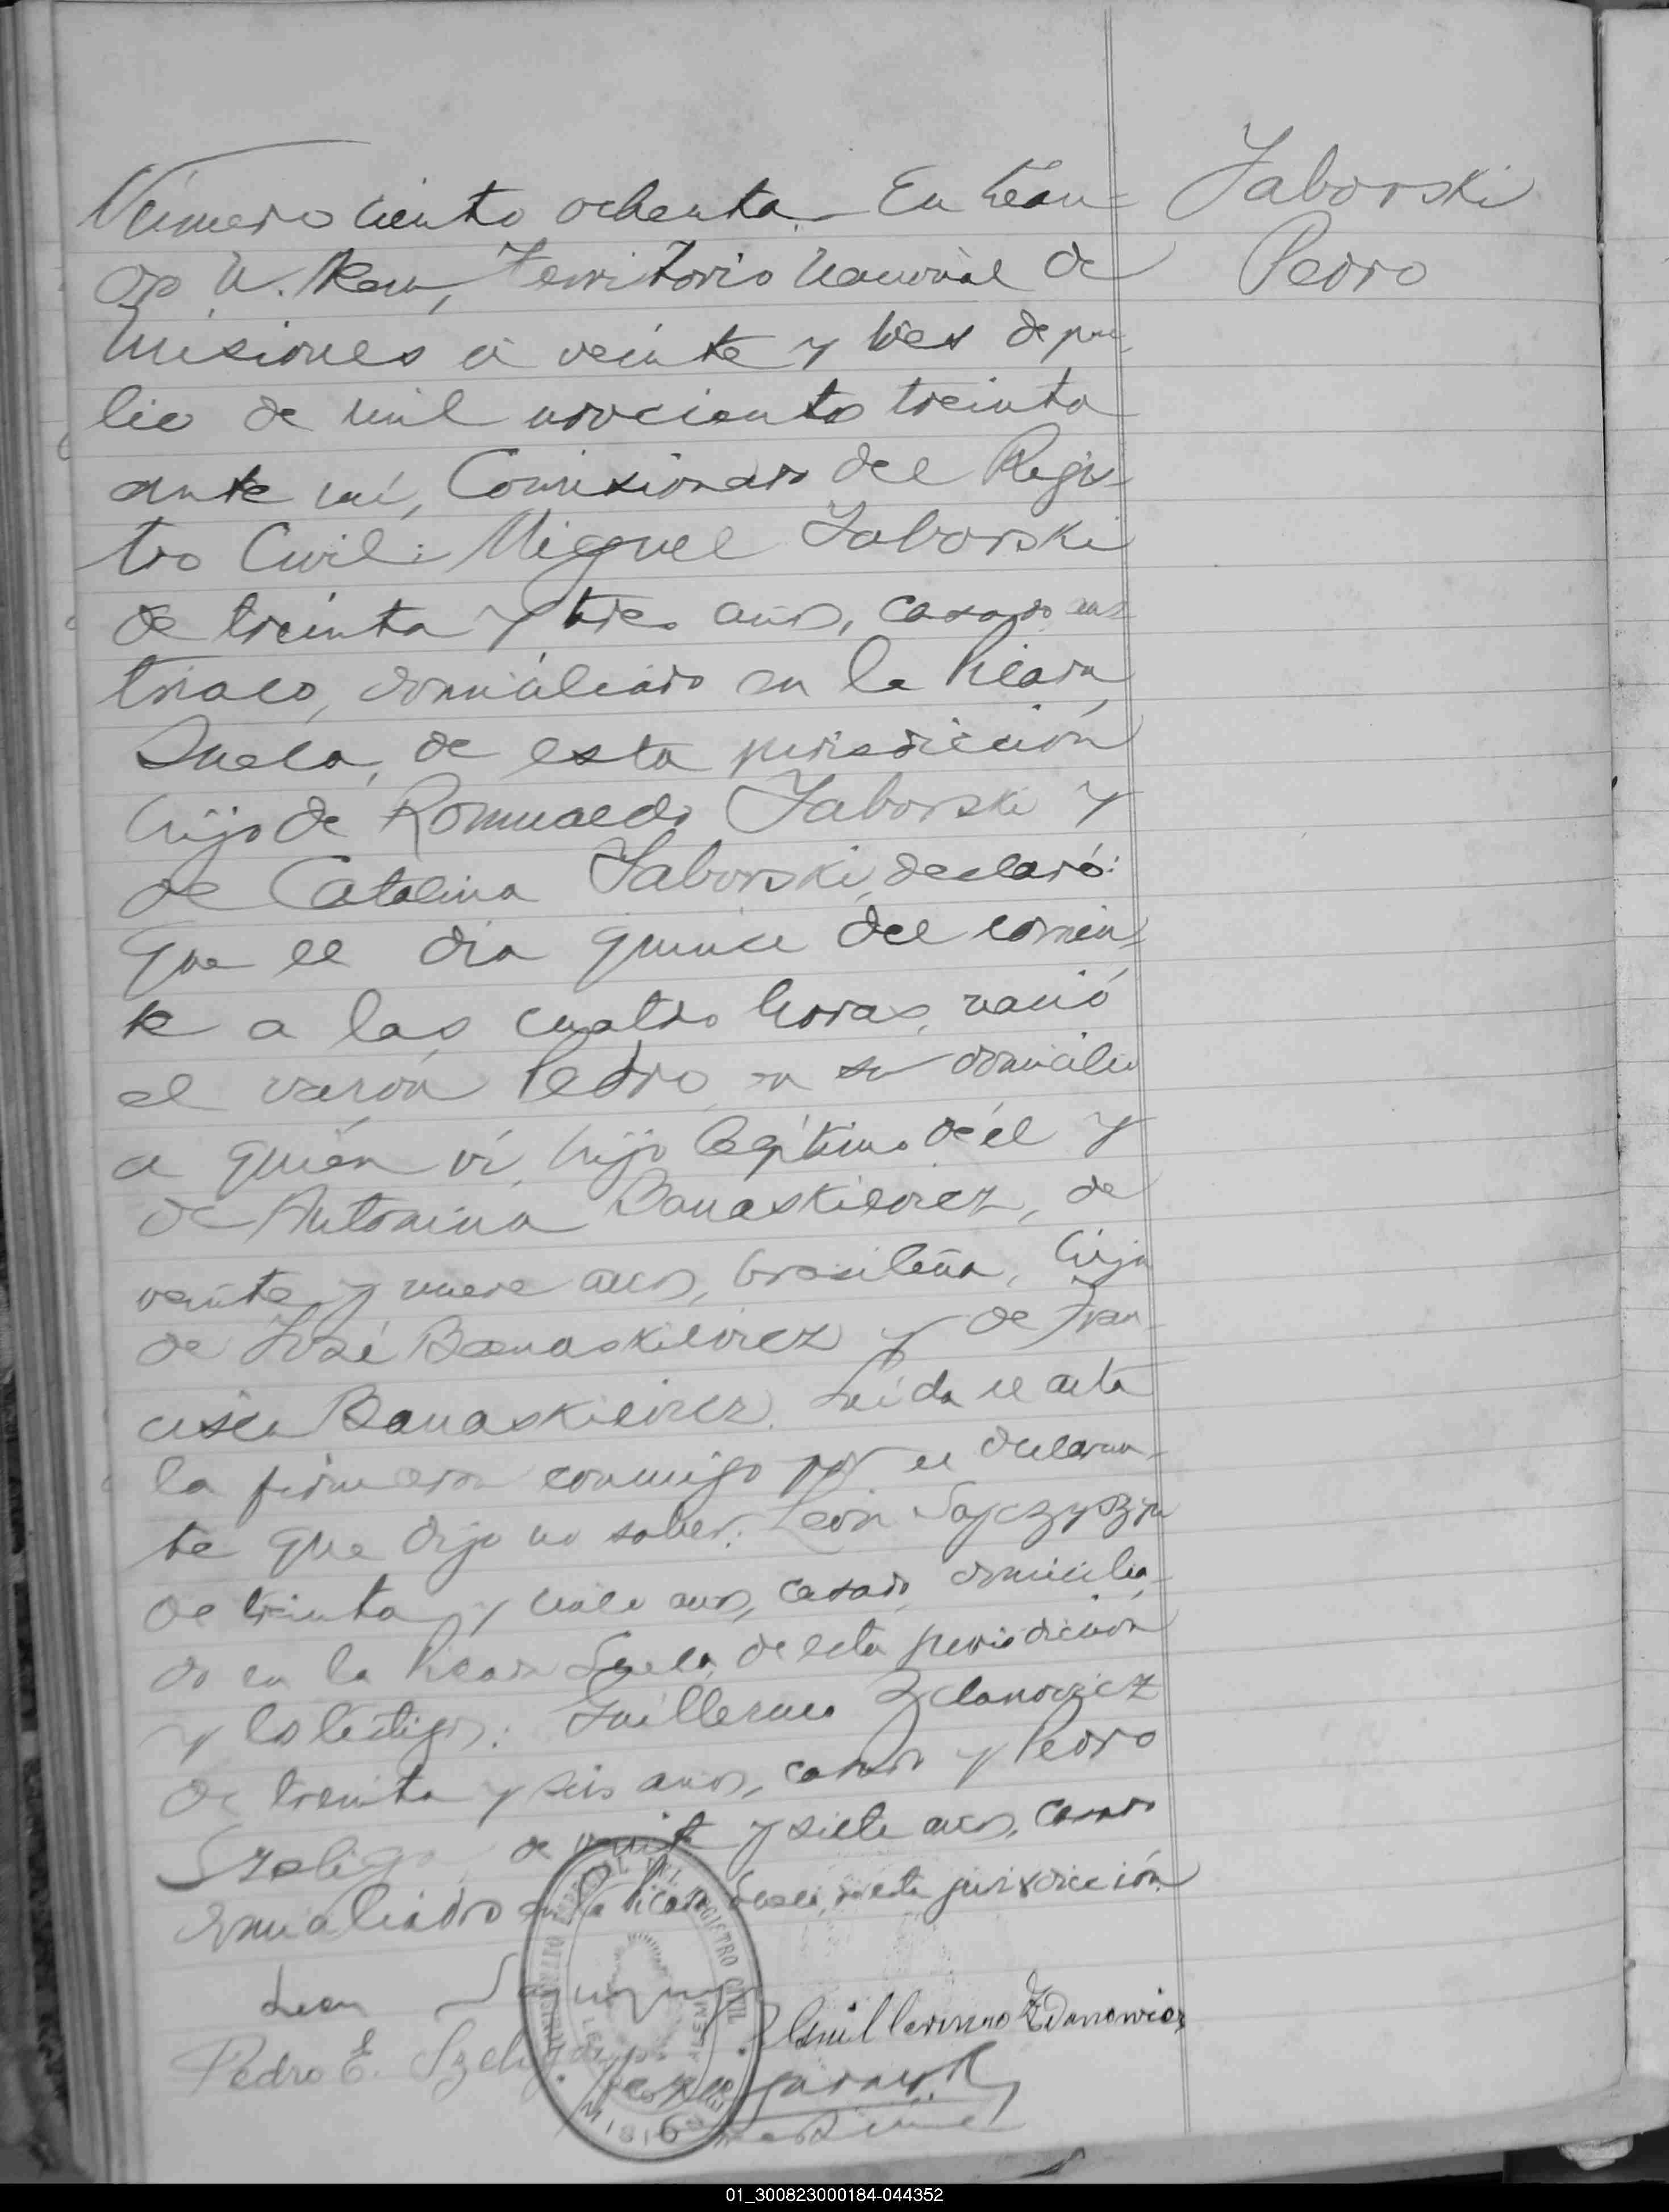 Número ciento ochenta. En Lean-
dro N. Alem, Territorio Nacional de
Misiones a veinte y tres de ju-
lio de mil novecientos treinta
ante mí, Comisionado del Regis-
tro Civil: Miguel Jaborski
de treinta y tres años, casado, aus-
triaco, domiciliado en la Picada
Suela, de esta jurisdicción
hijo de Romualdo Jaborski y
de Catalina Jaborski, declaró:
Que el dia quince del corrien-
te a las cuatro horas, nació
el varón Pedro, en su domicilio
a quién ví, hijo legítimo de él y
de Antonina Banaskievicz, de
veinte y nueve años, brasileña, hija
de José Banaskievicz y de Fran-
cisca Banaskievicz. Leída el acta
la firmaron conmigo por el declaran-
te que dijo no saber: León
de treinta y años, casado, domicilia-
do en la Picada Suela, de esta jurisdicción
y los testigos: Guillermo Zdanowicz
de treinta y seis años, casado y Pedro
Szeliga, de y siete años, casado
domiciliados en la Picada Suela, de esta jurisdicción
Leon
Guillermo Zdanowicz
Pedro E. Szeliga
Jaborski
Pedro
REGISTRO CIVIL
MISIONES
01_300823000184-044352